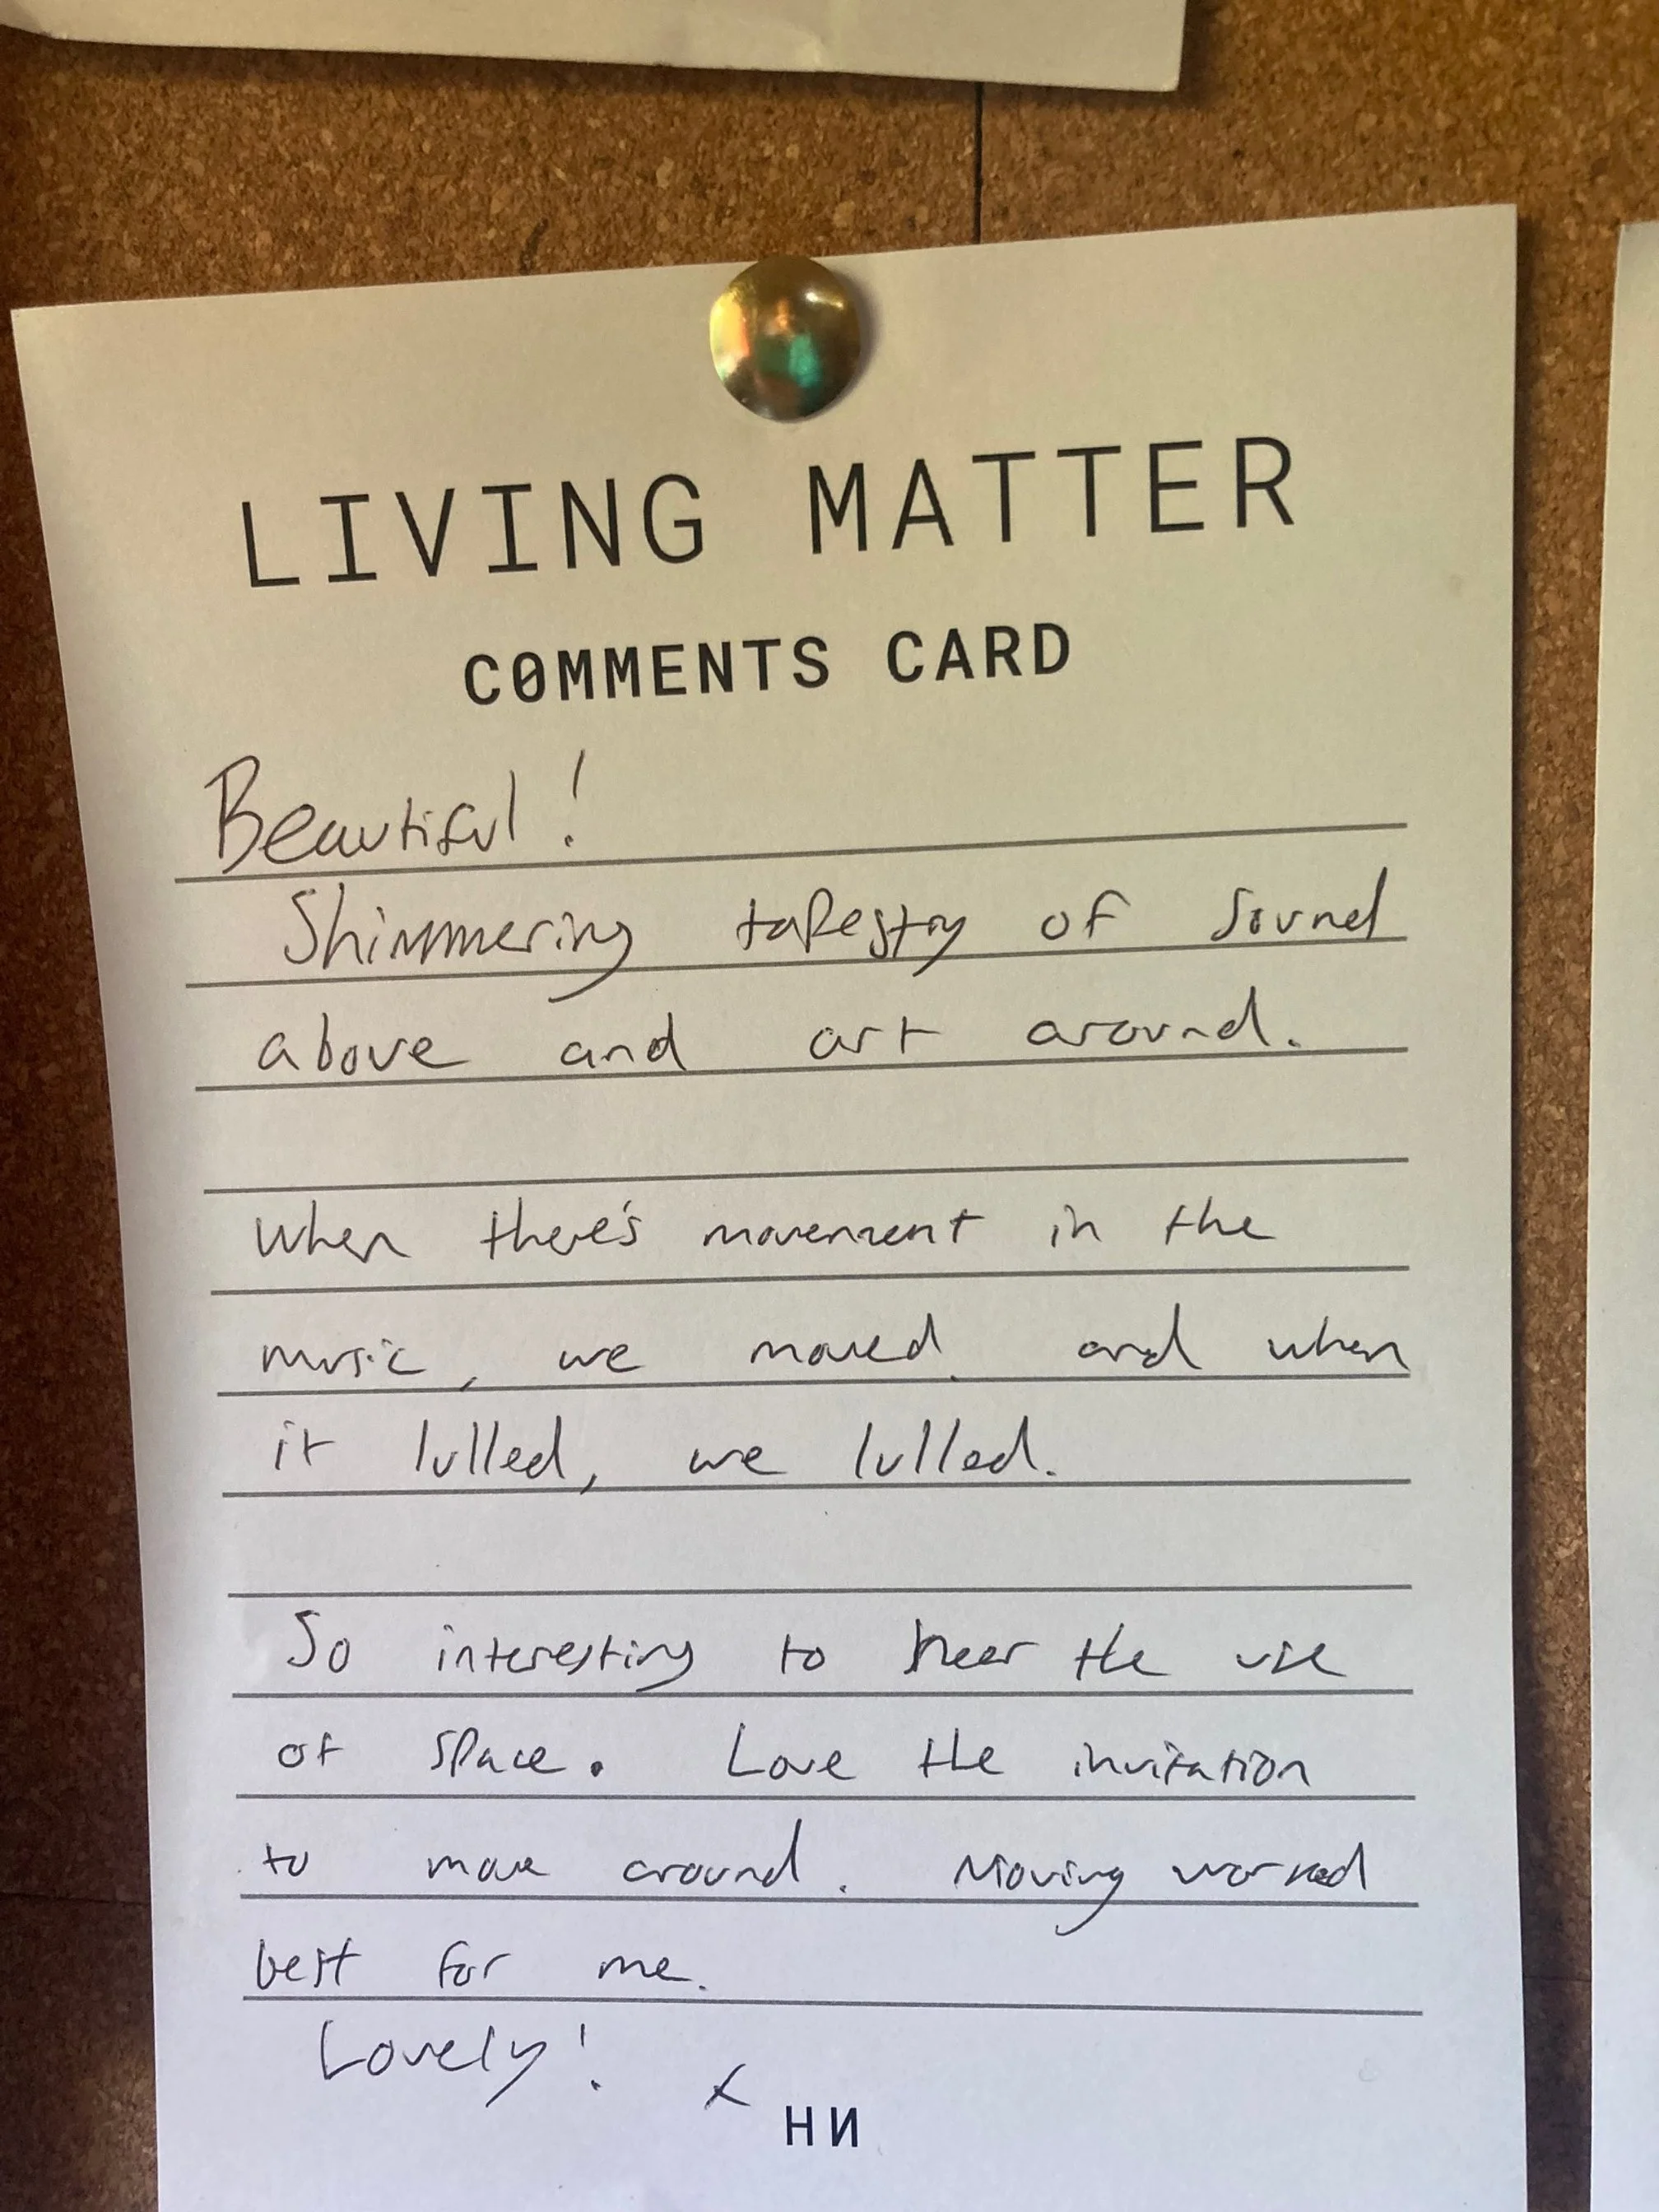 LIVING MATTER
COMMENTS CARD
Beautiful!
Shimmering tapestry of sound
above and art around.
When there's movement in the
music, we moved. and when
it lulled, we lulled.
So interesting to hear the use
of space. Love the invitation
to move around. Moving worked
best for me.
Lovely! x
HИ